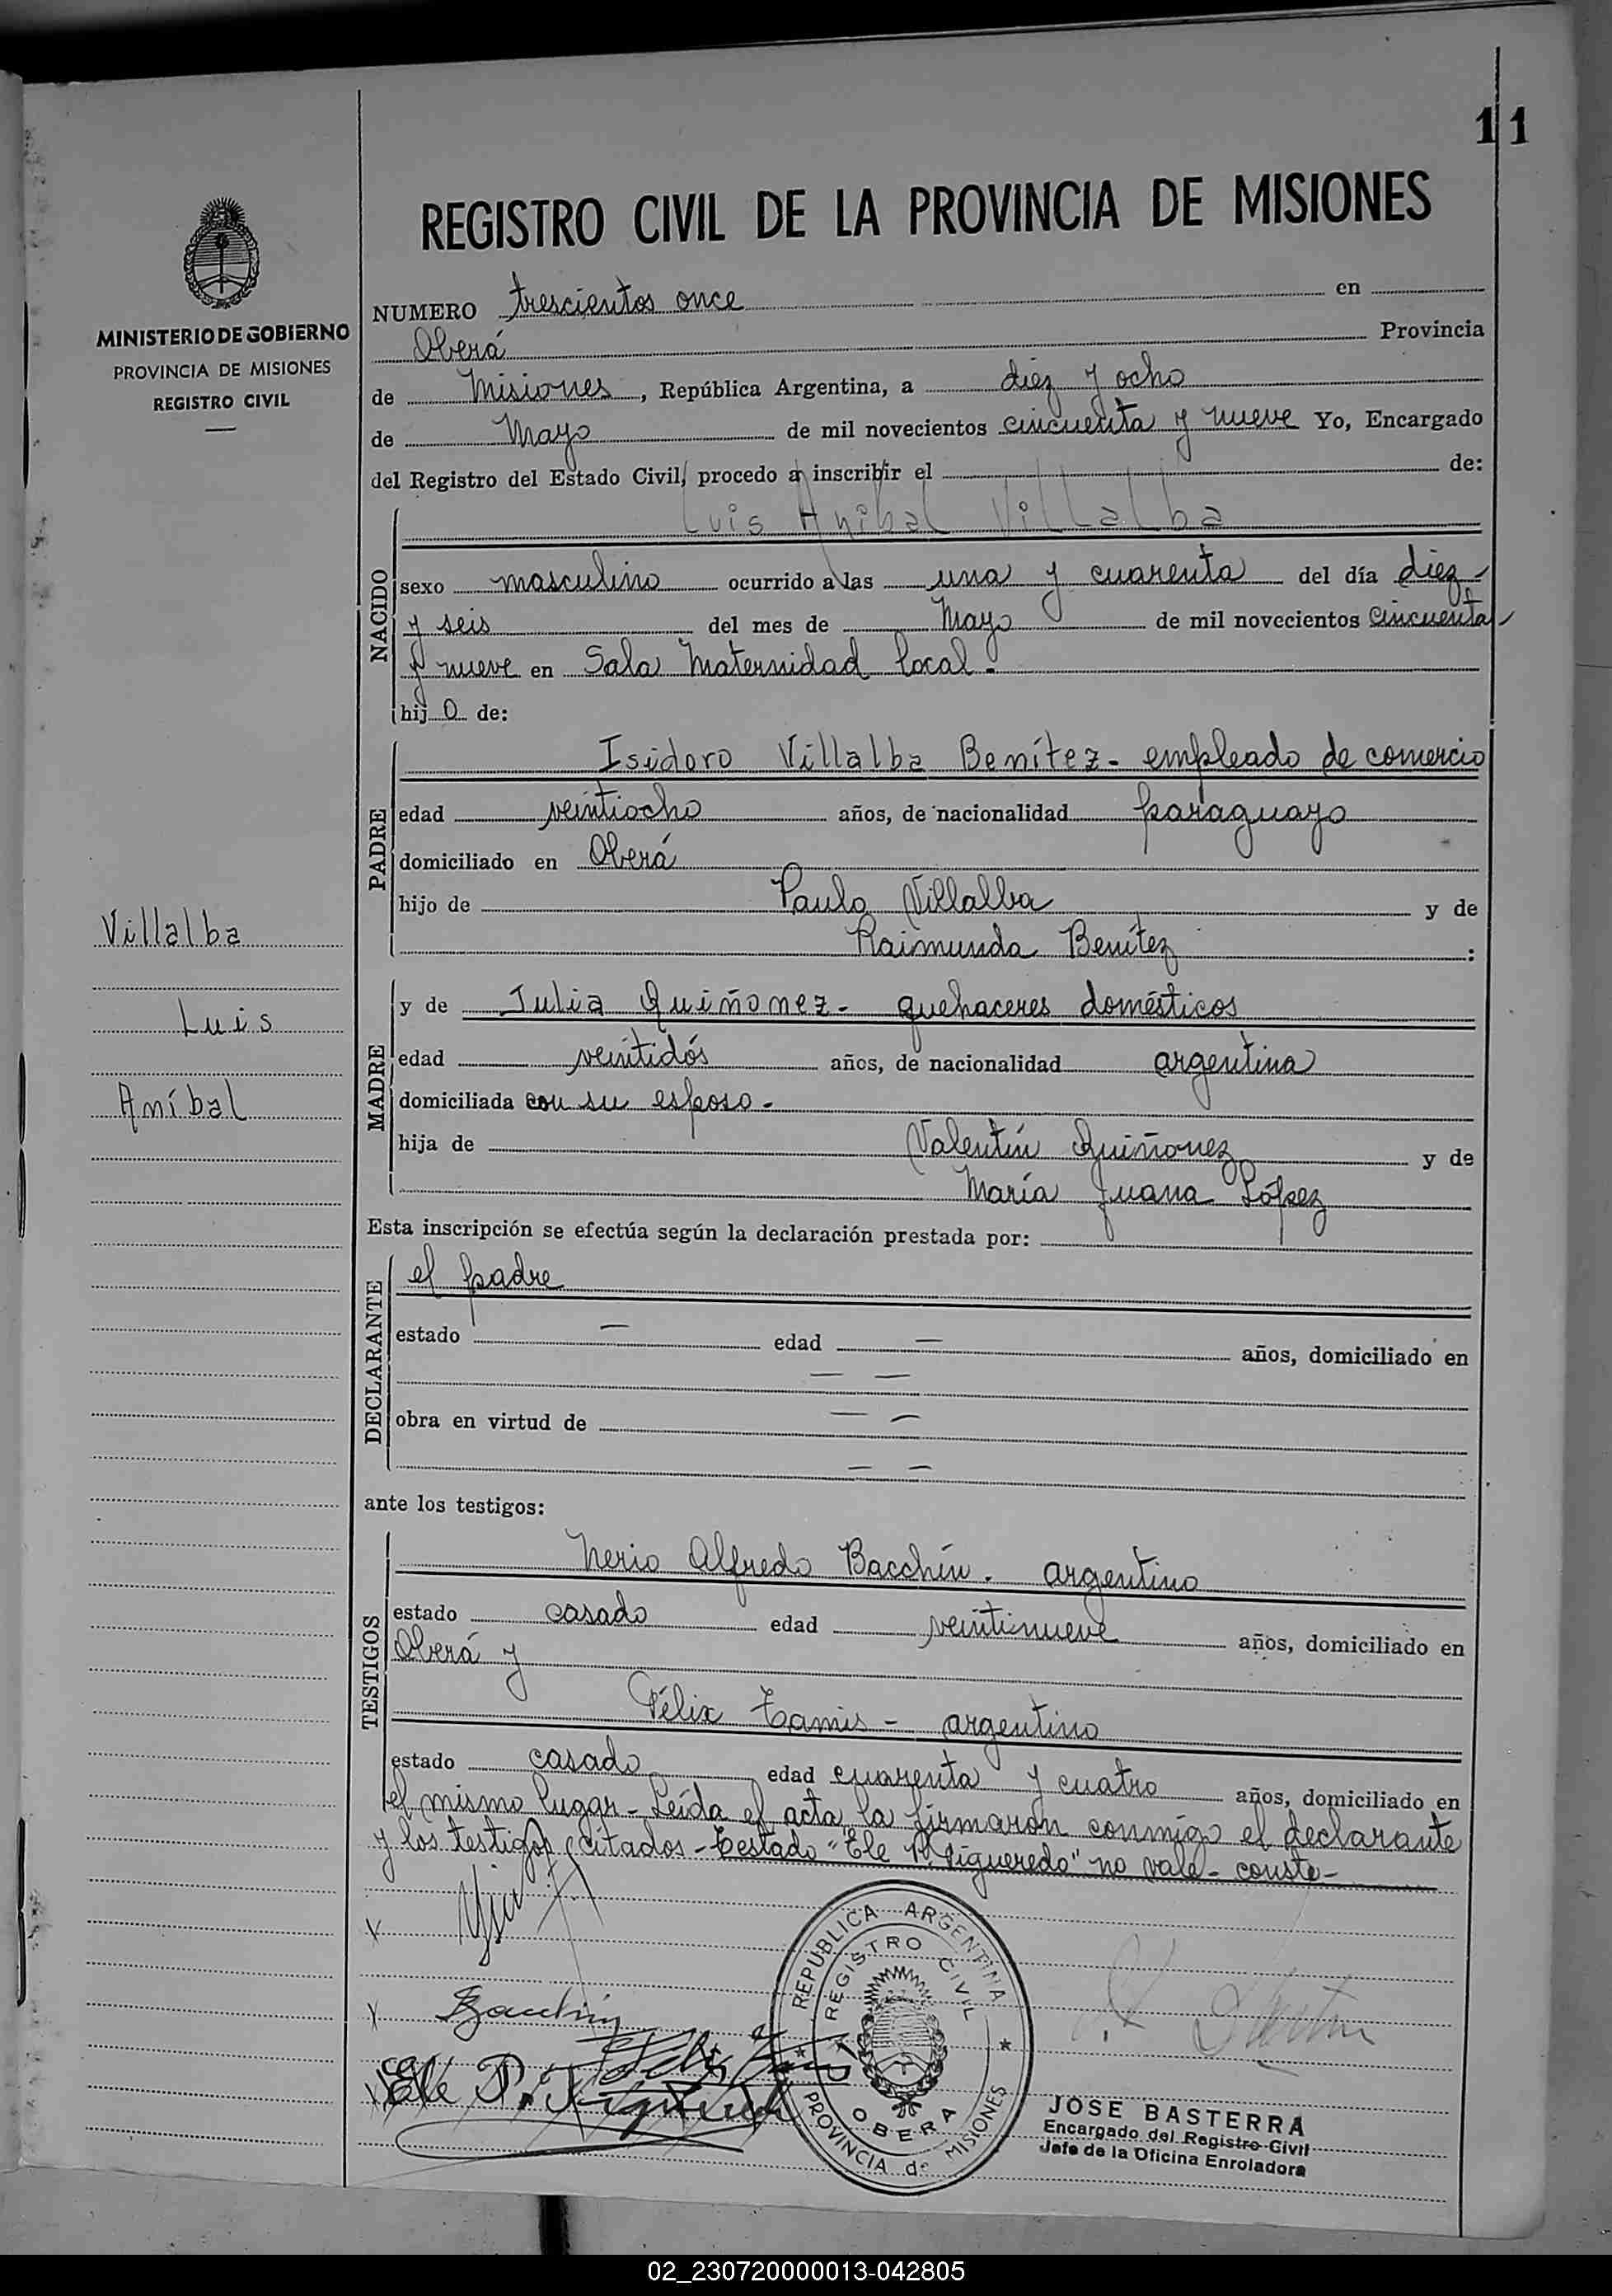 11
REGISTRO CIVIL DE LA PROVINCIA DE MISIONES
MINISTERIO DE GOBIERNO
PROVINCIA DE MISIONES
REGISTRO CIVIL
NUMERO trescientos once en
Oberá Provincia
de Misiones, República Argentina, a diez y ocho
de Mayo de mil novecientos cincuenta y nueve Yo, Encargado
del Registro del Estado Civil, procedo a inscribir el de:
Luis Anibal Villalba
NACIDO
sexo masculino ocurrido a las una y cuarenta del día diez
y seis del mes de Mayo de mil novecientos cincuenta
y nueve en Sala Maternidad local.
hijo de:
PADRE
Isidoro Villalba Benítez - empleado de comercio
edad veintiocho años, de nacionalidad paraguayo
domiciliado en Oberá
hijo de Paulo Villalba y de
Raimunda Benítez :
Villalba
Luis
Aníbal
MADRE
y de Julia Quiñonez - quehaceres domésticos
edad veintidós años, de nacionalidad argentina
domiciliada con su esposo -
hija de Valentín Quiñonez y de
María Juana López
Esta inscripción se efectúa según la declaración prestada por:
DECLARANTE
el padre
estado — edad — años, domiciliado en
— —
obra en virtud de — —
— —
ante los testigos:
TESTIGOS
Nerio Alfredo Bacchín - argentino
estado casado edad veintinueve años, domiciliado en
Oberá y
Félix Tamis - argentino
estado casado edad cuarenta y cuatro años, domiciliado en
el mismo lugar - Leída el acta la firmaron conmigo el declarante
y los testigos citados - Testado "Ele P. Figueredo" no vale - conste -
Bacchín
Félix Tamis
Ele P. Figueredo
REPUBLICA ARGENTINA
REGISTRO CIVIL
OBERA
PROVINCIA de MISIONES
JOSE BASTERRA
Encargado del Registro Civil
Jefe de la Oficina Enroladora
02_230720000013-042805